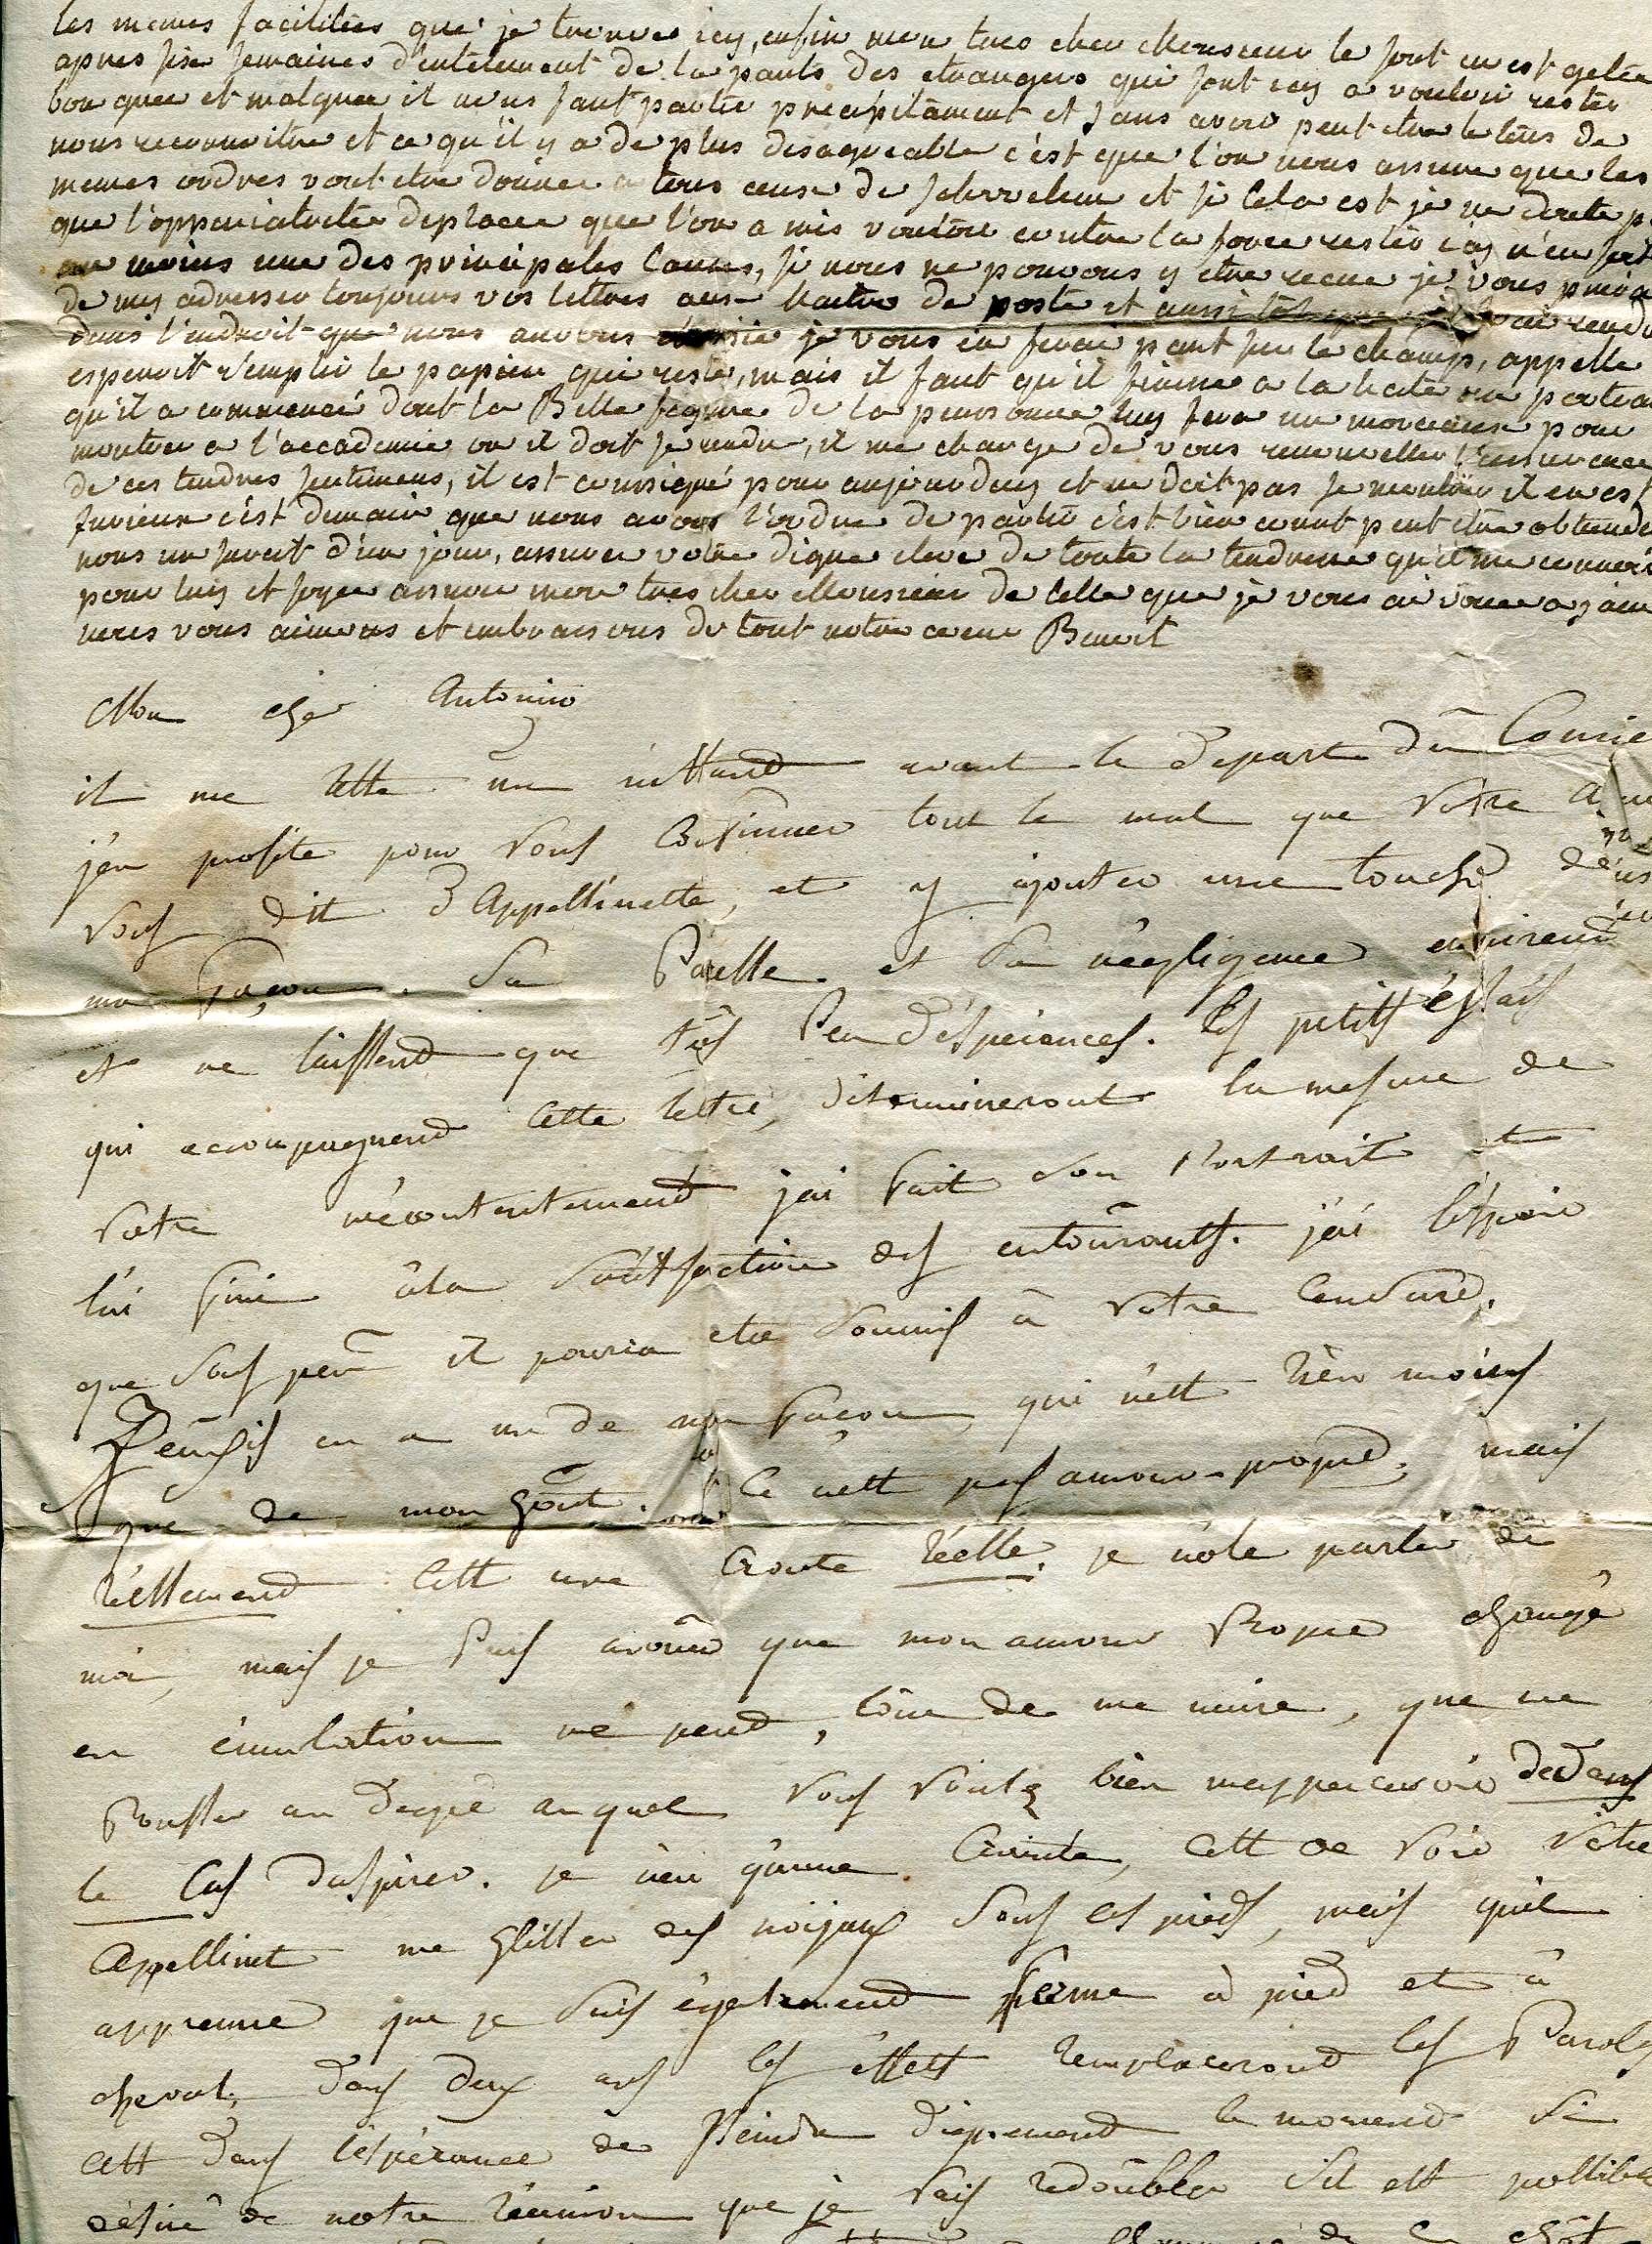 les memes facilitées que je trouve icy, enfin mon tres cher Monsieur le sort en est getée
apres six semaines d'entêtement de la parts des etrangers qui sont icy a vouloir rester
bon grée et malgrée il nous faut partir precipitament et sans avoir peut etre le tems de
nous reconnoitre et ce qu'il y a de plus desagreable c'est que l'on nous assure que les
memes ordres vont etre donnée a tous ceux de et si cela est je ne doute
que l'oppiniatretée deplacée que l'on a mis vouloir contre la force rester icy n'en soit
au moins une des principales causes, si nous ne pouvons y etre recue je vous prierai
de my adresser toujours vos lettres aux maitre de poste et aussi tôt que je serai rendu
dans l'endroit que nous aurons choisie je vous en ferai part sur le champ, appelle
esperoit remplir le papier qui reste, mais il faut qu'il finisse a la hate un portrait
qu'il a commencé dont la Belle figure de la personne luy fera un morceaux pour
montrer a l'accademie ou il doit se rendre, il me charge de vous renouveller l'assurence
de ces tendres sentimens, il est consigné pour aujourduy et ne doit pas se montrer il en est
furieux c'est demain que nous avons l'ordre de partir c'est bien court peut etre obtiendrons
nous un surcit d'un jour, assurer votre digne eleve de toute la tendresse qu'il me connoit
pour luy et soyer assure mon tres cher Monsieur de celle que je vous ai vouée a jamais
nous vous aimons et embrassons de tout notre coeur Benoit
Mon cher Antonin
il me reste un insttand avant le depart du Courier
j'en profite pour vous confirmer tout le mal que votre ami
vous dit d'Appellinette, et y ajouter une touche de
ma façon. Sa Paresse et sa négligence empirend
et ne laissend que très Peu d'éspérances. les petits éssais
qui accompagnend cette lettre, détermineront la mesure de
votre mécontentemend j'ai fait son Portrait et
l'ai fini à la sattisfaction des entourants. j'ai l'éspoir
que sous peu il pourra etre soumis à votre Censure.
en a un de ma façon, qui n'est rien moins
que de mon goût. Ce n'est pas amour-propre, mais
réellemend Cest une Croute réelle. je n'ose parler de
moi, mais je Puis avouer que mon amour Propre changé
en émulation ne peud, loin de me nuire, que me
Pousser au degré auquel vous voulez bien m'appercevoir dedans
le Cas d'aspirer. je n'ai qu'une Crainte, Cest de voir votre
Appellinet me glisser des noijaux sous les pieds, mais quil
apprenne que je suis égalemend ferme à pied et à
cheval. dans deux ans les éffets remplacerond les Paroles
Cest dans l'éspérance de Peindre dignemend le momend si
désiré de notre réunion que je vais redoubler sil est possible